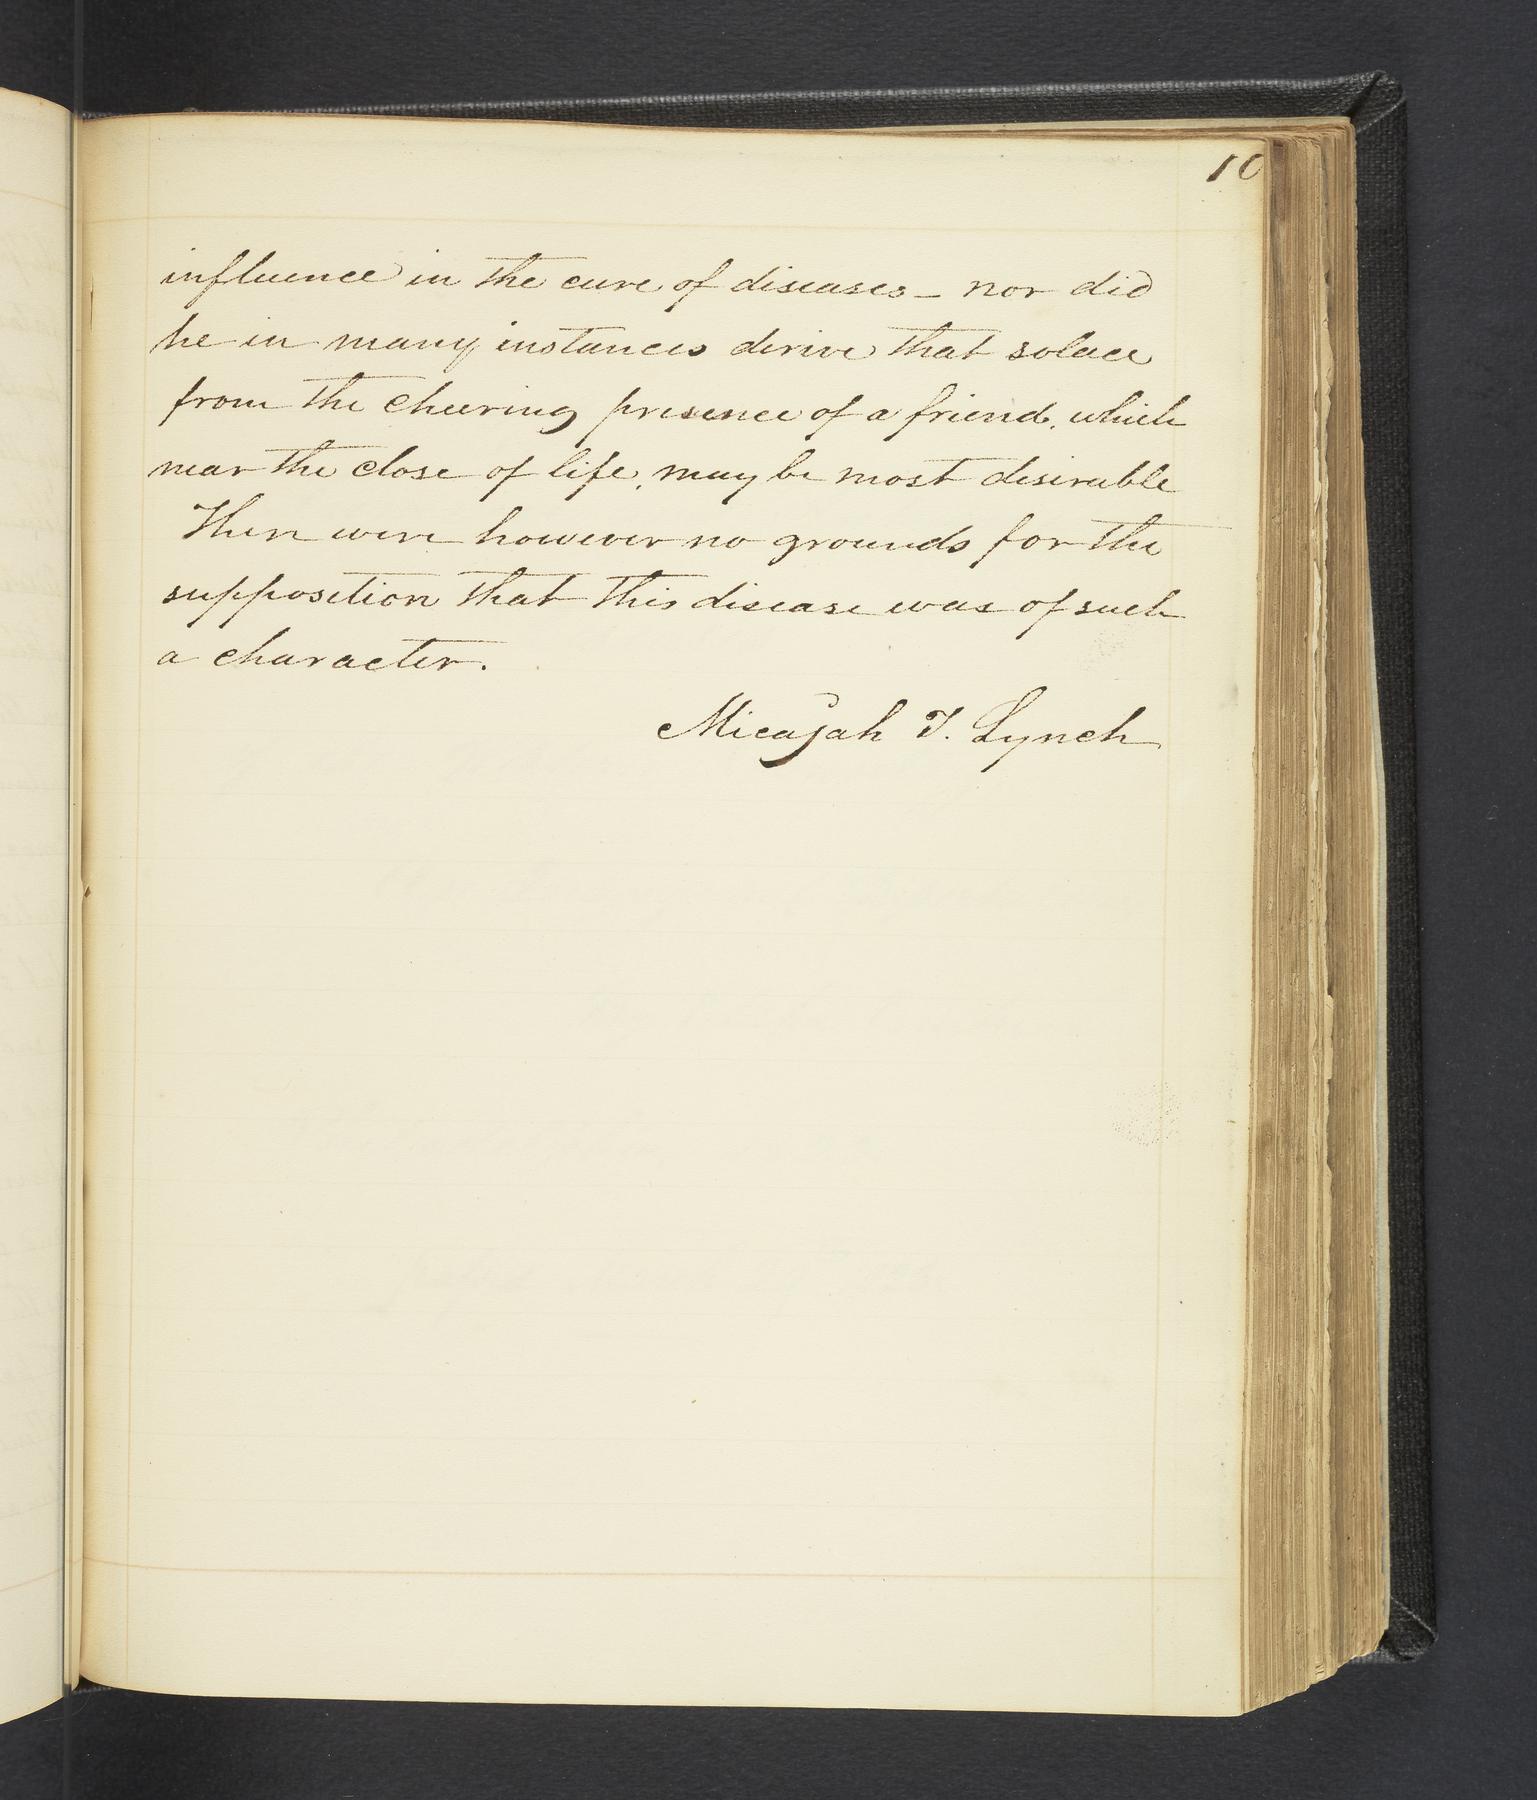 10
influence in the cure of diseases - nor did
he in many instances derive that solace
from the cheering presence of a friend, which
near the close of life, may be most desirable
There were however no grounds for the
supposition that this disease was of such
a character.
Micajah T. Lynch